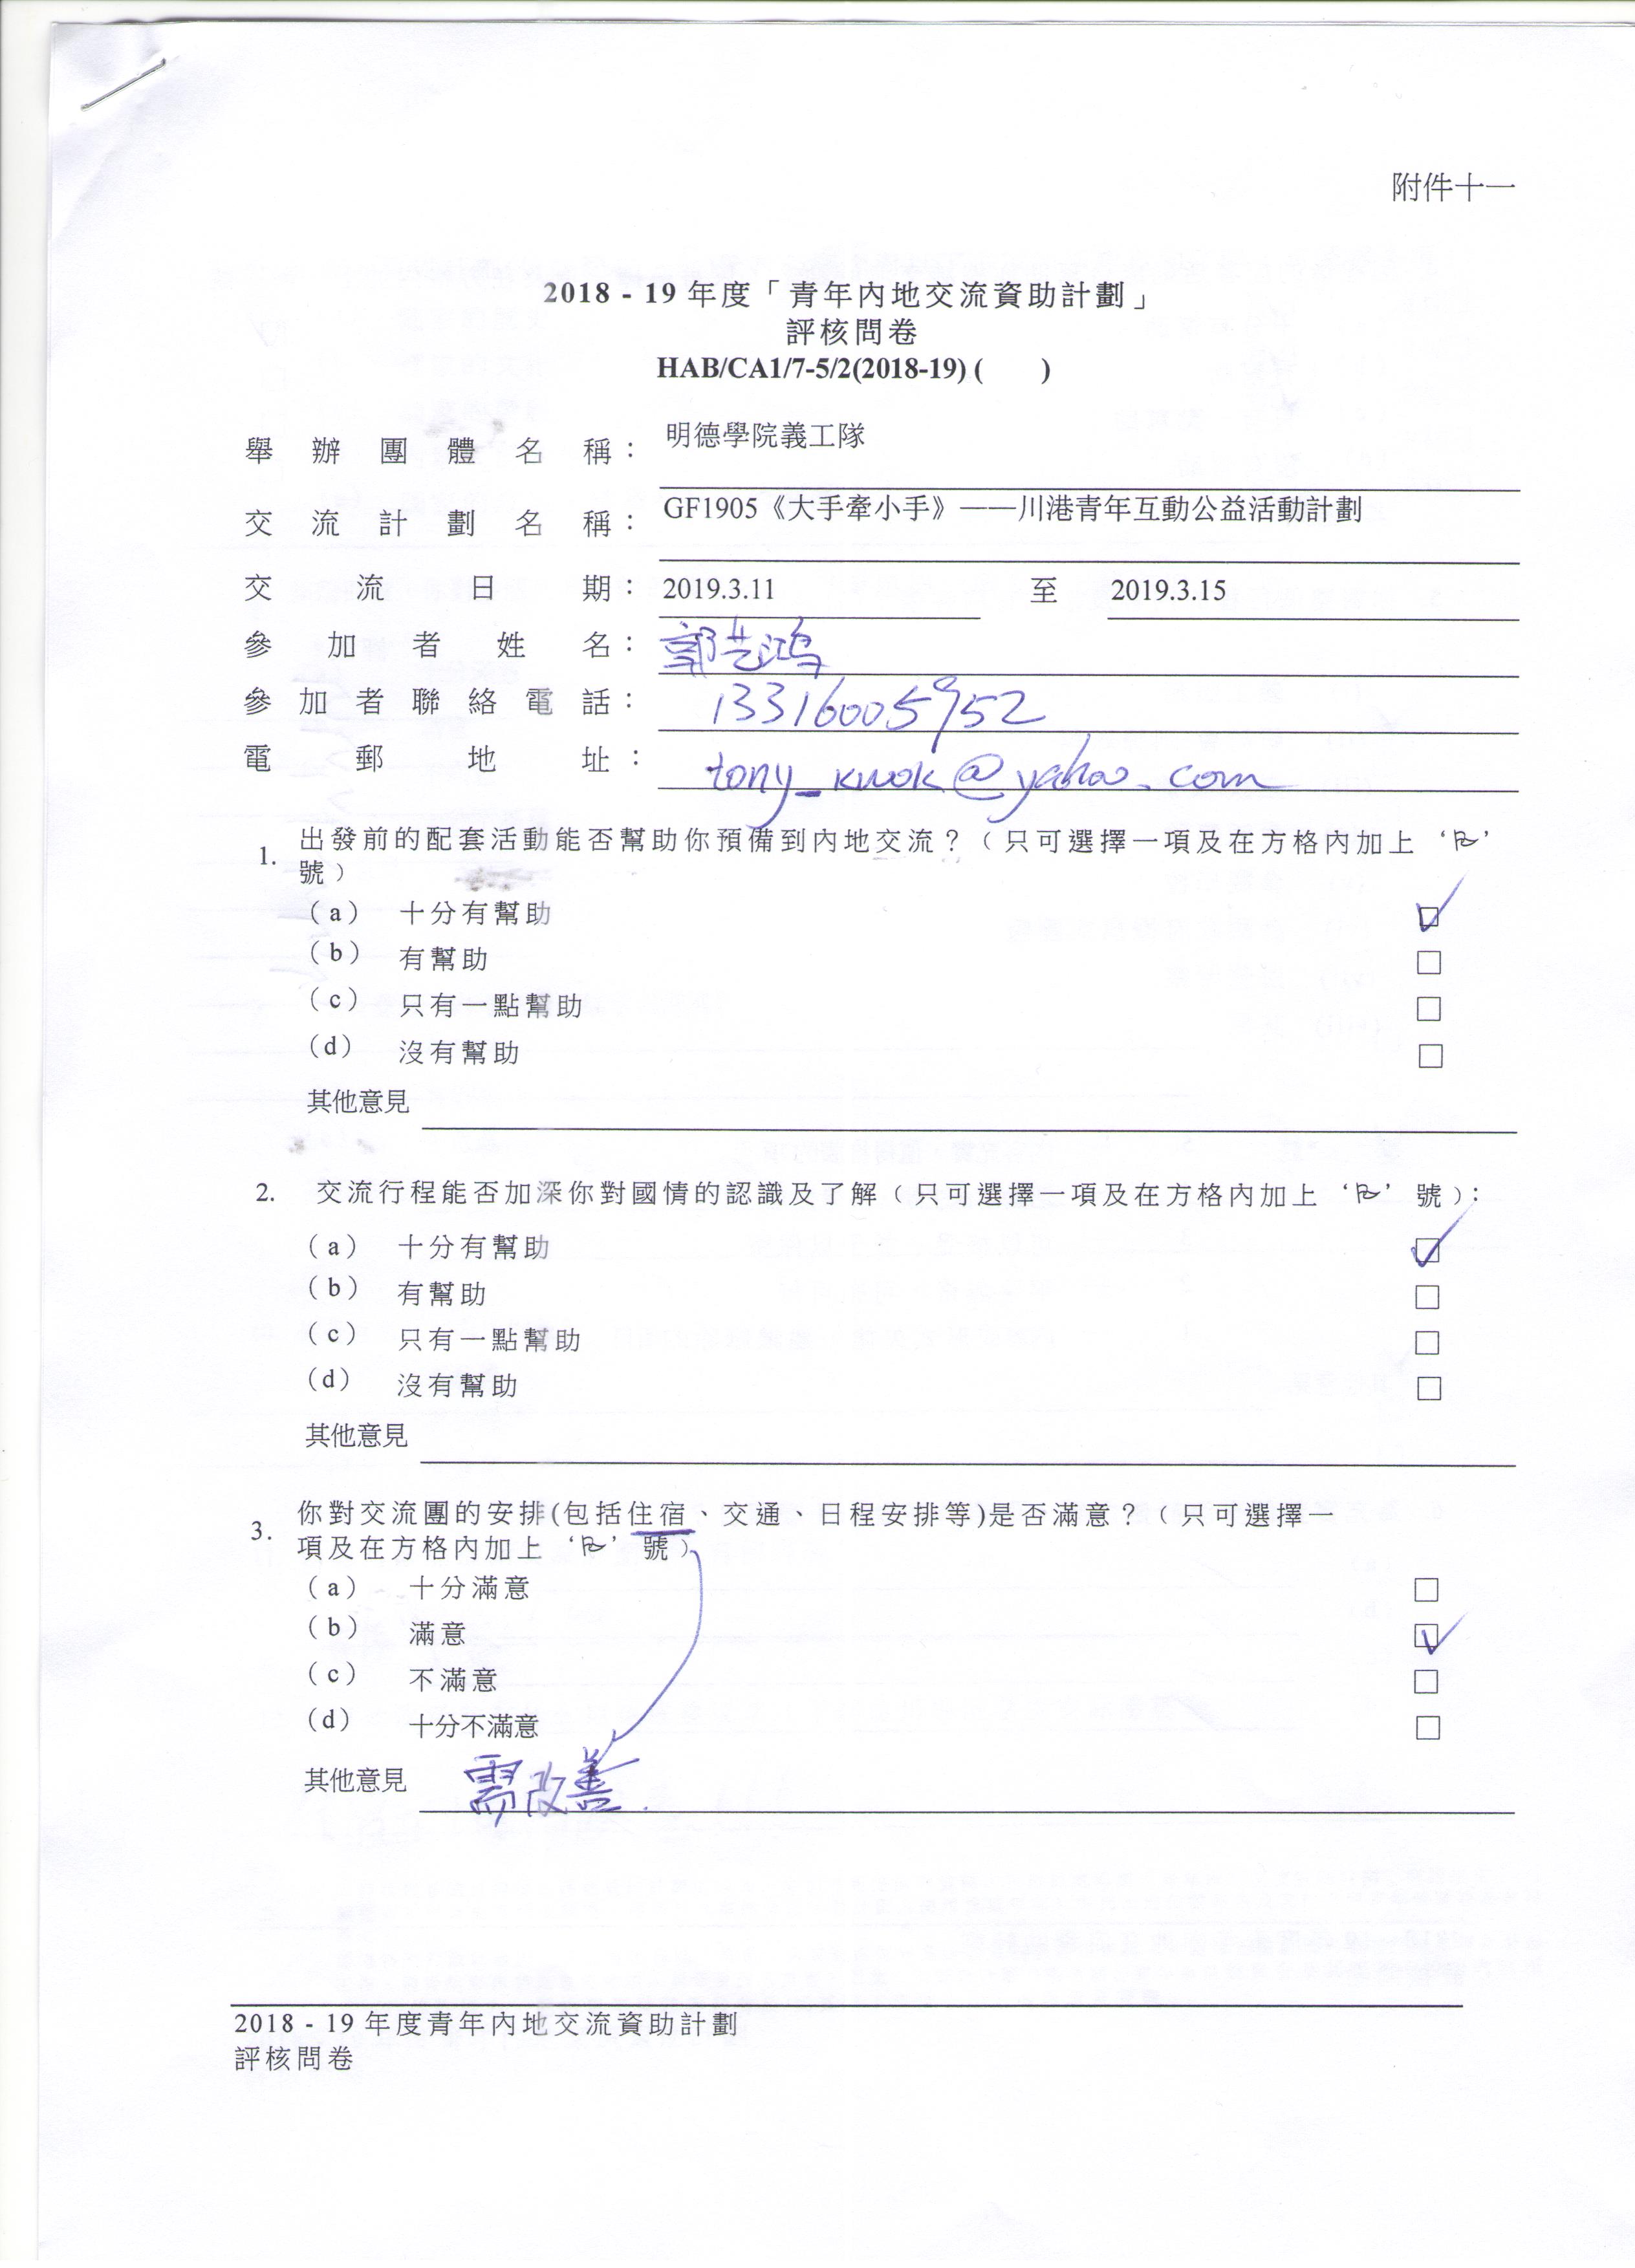 附件十一
2018 - 19 年度「青年內地交流資助計劃」
評核問卷
HAB/CA1/7-5/2(2018-19) (　　)
舉辦團體名稱： 明德學院義工隊
交流計劃名稱： GF1905《大手牽小手》——川港青年互動公益活動計劃
交流日期： 2019.3.11 至 2019.3.15
參加者姓名： 郭芸鸿
參加者聯絡電話： 13316005952
電郵地址： tony_kwok@yahoo.com
1. 出發前的配套活動能否幫助你預備到內地交流？（只可選擇一項及在方格內加上 ‘ ’
號）
(a) 十分有幫助 ☑
(b) 有幫助 □
(c) 只有一點幫助 □
(d) 沒有幫助 □
其他意見
2. 交流行程能否加深你對國情的認識及了解（只可選擇一項及在方格內加上 ‘ ’ 號）：
(a) 十分有幫助 ☑
(b) 有幫助 □
(c) 只有一點幫助 □
(d) 沒有幫助 □
其他意見
3. 你對交流團的安排(包括住宿、交通、日程安排等)是否滿意？（只可選擇一
項及在方格內加上 ‘ ’ 號）
(a) 十分滿意 □
(b) 滿意 ☑
(c) 不滿意 □
(d) 十分不滿意 □
其他意見 需改善.
2018 - 19 年度青年內地交流資助計劃
評核問卷